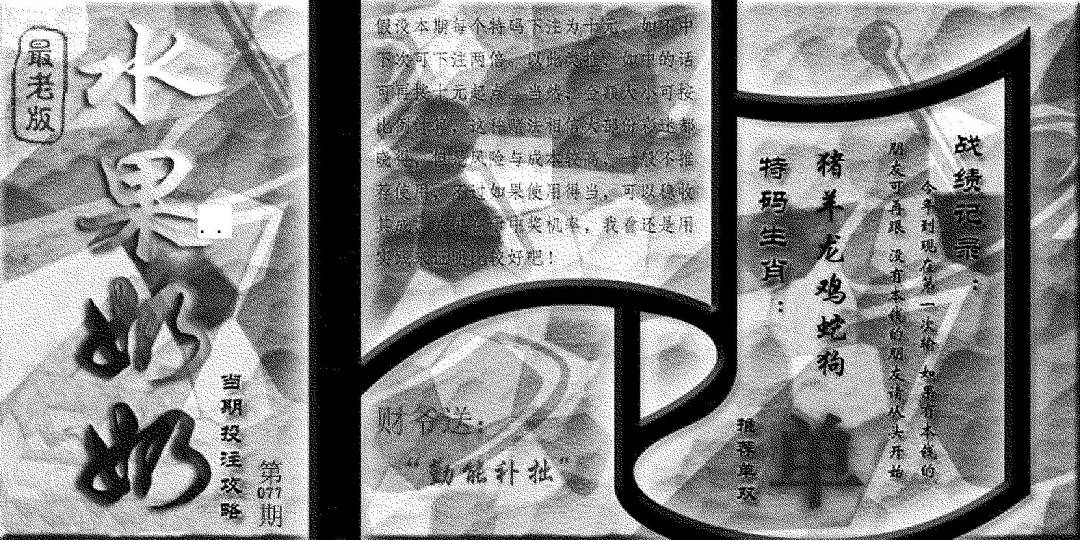 最老版
水果奶奶
当期投注攻略
第
077
期
假设本期每个特码下注为十元，如不中
下次可下注两倍，以此类推，如中的话
可再按十元起点。当然，金额大小可按
比例 这种赌注相信大部份彩迷都
晓得，但是风险与成本较高，一般不推
荐使用，不过如果使用得当，可以稳收
中奖机率，我看还是用
比较好吧！
财爷送：
“勤能补拙”
战绩记录：
今年到现在第一次输 如果有本钱的
朋友可再跟 没有本钱的朋友请从头开始
猪羊龙鸡蛇狗
特码生肖：
推荐单双
单